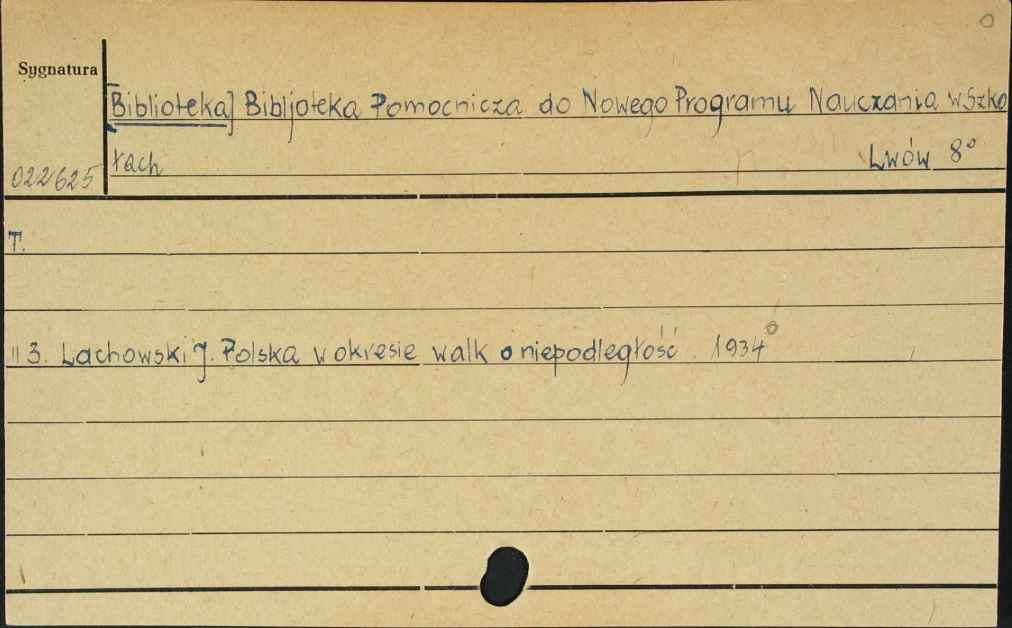 Sygnatura
[Biblioteka] Bibljoteka Pomocnicza do Nowego Programu Nauczania w Szko
łach Lwów 8°
022625
T.
" 3. Lachowski J. Polska w okresie walk o niepodległość. 1934